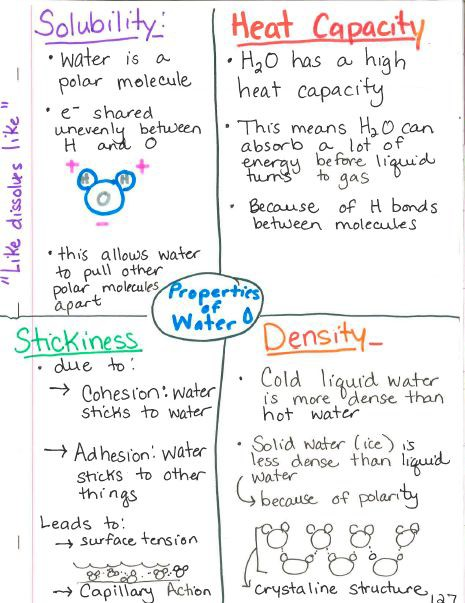 Solubility:
• Water is a
polar molecule
• e⁻ shared
unevenly between
H and O
+ +
H H
O
–
• this allows water
to pull other
polar molecules
apart
"Like dissolves like"
Heat Capacity
• H₂O has a high
heat capacity
• This means H₂O can
absorb a lot of
energy before liquid
turns to gas
• Because of H bonds
between molecules
Properties
of
Water
Stickiness
• due to:
→ Cohesion: water
sticks to water
→ Adhesion: water
sticks to other
things
Leads to:
→ surface tension
→ Capillary Action
Density
• Cold liquid water
is more dense than
hot water
• Solid water (ice) is
less dense than liquid
water
↳ because of polarity
↳ crystaline structure
127